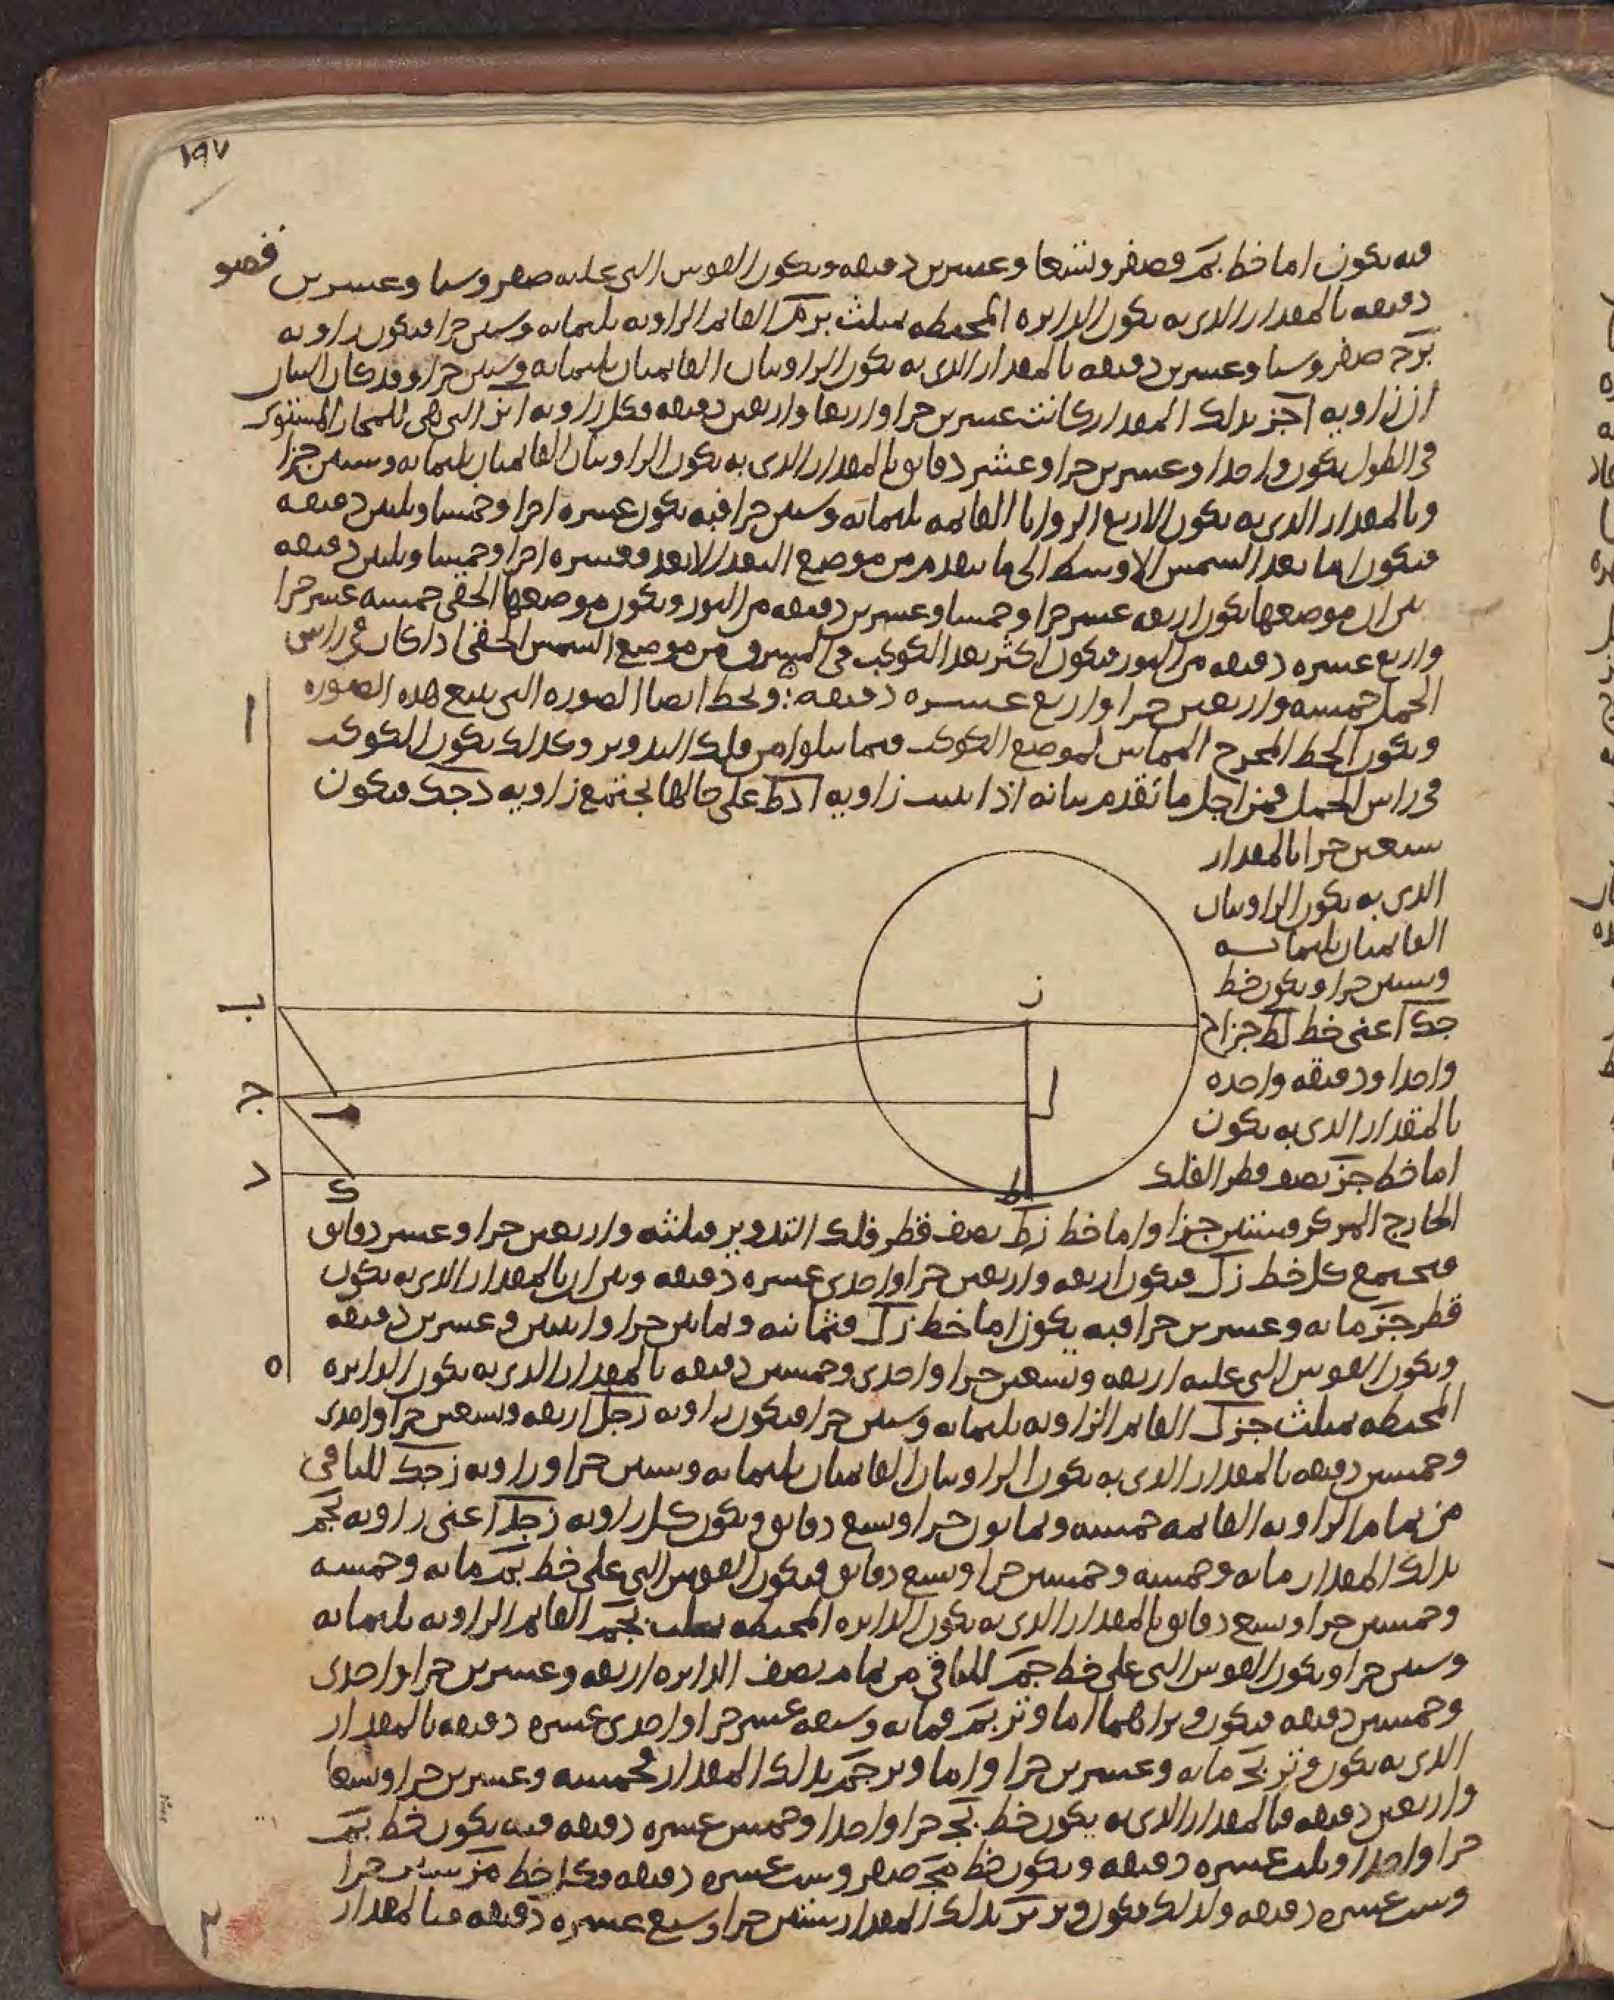 ١٩٧
فيه يكون اما خط بم فصفر وتسعا وعشرين دقيقه ويكون القوس التى عليه صفر وستا وعشرين
دقيقه بالمقدار الذى به يكون الدايره المحيطه بمثلث بزم القايم الزاويه ثلثمايه وستين جزا فيكون زاويه
بزج صفر وستا وعشرين دقيقه بالمقدار الذى به يكون الزاويتان القايمتان ثلثمايه وستين جزا وقد كان
ان زاويه اجز بذلك المقدار كانت عشرين جزا واربعا واربعين دقيقه فكل زاويه ابز التى هى للمجاز المستوى
فى الطول يكون واحدا وعشرين جزا وعشر دقايق بالمقدار الذى به يكون الزاويتان القايمتان ثلثمايه وستين جزا
وبالمقدار الذى به يكون الاربع الزوايا القايمه ثلثمايه وستين جزا فبه يكون عشره اجزا وخمسا وثلثين دقيقه
فيكون اما بعد الشمس الاوسط الى ما يتقدم من موضع البعد الابعد فعشره اجزا وخمسا وثلثين دقيقه
بين ان موضعها يكون اربعه عشر جزا وخمسا وعشرين دقيقه من الثور ويكون موضعها الحقى خمسه عشر جزا
واربع عشره دقيقه من الثور فيكون اكثر بعد الكوكب فى المشرق من موضع الشمس الحقى اذا كان فى راس
الحمل خمسه واربعين جزا واربع عشره دقيقه : ونخط ايضا الصوره التى تتبع هذه الصوره
ويكون الخط المخرج المماس لموضع الكوكب فيما يتلوا من فلك التدوير وكذلك يكون الكوكب
فى راس الحمل فمن اجل ما تقدم بيانه اذا زاويه ادط على حالها يجتمع زاويه دجك فيكون
سبعين جزا بالمقدار
الذى به يكون الزاويتان
القايمتان ثلثمايه
وستين جزا ويكون خط
جك اعنى خط لط جزا
واحدا ودقيقه واحده
بالمقدار الذى به يكون
اما خط جز نصف قطر الفلك
الخارج المركز فستين جزا واما خط زط نصف قطر فلك التدوير فثلثه واربعين جزا وعشر دقايق
فيجتمع كل خط زل فيكون اربعه واربعين جزا واحدى عشره دقيقه وبين ان بالمقدار الذى به يكون
قطر جز مايه وعشرين جزا فبه يكون اما خط زل فثمانيه وثمانين جزا واثنين وعشرين دقيقه
ويكون القوس التى عليه اربعه وتسعين جزا واحدى وخمسين دقيقه بالمقدار الذى به يكون الدايره
المحيطه بمثلث جزل القايم الزاويه ثلثمايه وستين جزا فيكون زاويه زجل اربعه وتسعين جزا واحدى
وخمسين دقيقه بالمقدار الذى به يكون الزاويتان القايمتان ثلثمايه وستين جزا وزاويه زجك للباقى
من تمام الزاويه القايمه خمسه وثمانون جزا وتسع دقايق ويكون كل زاويه زجد اعنى زاويه بجم
بذلك المقدار مايه وخمسه وخمسين جزا وتسع دقايق فيكون القوس التى على خط بم مايه وخمسه
وخمسين جزا وتسع دقايق بالمقدار الذى به يكون الدايره المحيطه بمثلث بجم القايم الزاويه ثلثمايه
وستين جزا ويكون القوس التى على خط جم للباقى من تمام نصف الدايره اربعه وعشرين جزا واحدى
وخمسين دقيقه فيكون وتراهما اما وتر بم فمايه وسبعه عشر جزا واحدى عشره دقيقه بالمقدار
الذى به يكون وتر بج مايه وعشرين جزا واما وتر جم بذلك المقدار فخمسه وعشرين جزا وتسعا
واربعين دقيقه فبالمقدار الذى به يكون خط بج جزا واحدا وخمس عشره دقيقه فبه يكون خط بم
جزا واحدا وثلث عشره دقيقه ويكون خط مج صفر وست عشره دقيقه وكل خط مز ستين جزا
وست عشره دقيقه ولذلك يكون وتر بز بذلك المقدار ستين جزا وسبع عشره دقيقه فبالمقدار
ا
ب
ج
م
د
ك
ه
ز
ل
ط